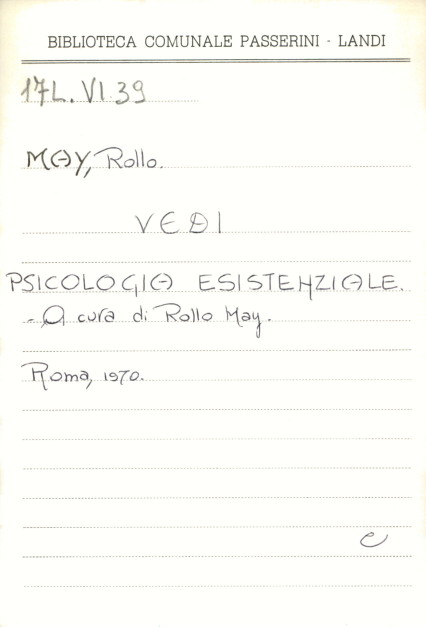 BIBLIOTECA COMUNALE PASSERINI - LANDI
17L.VI.39
MAY, Rollo.
VEDI
PSICOLOGIA ESISTENZIALE.
- A cura di Rollo May.
Roma, 1970.
e